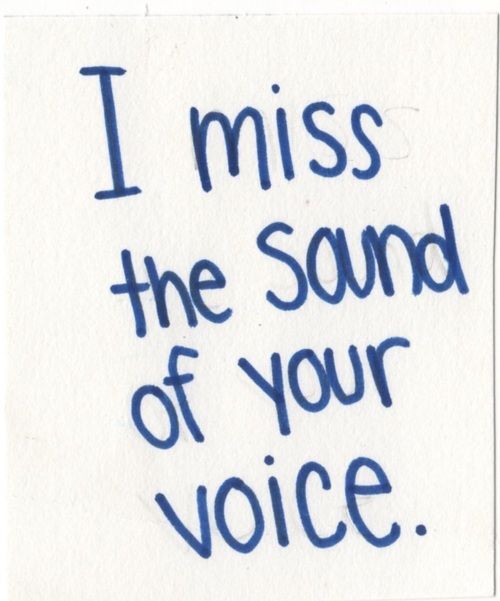 I miss
the sound
of your
voice.